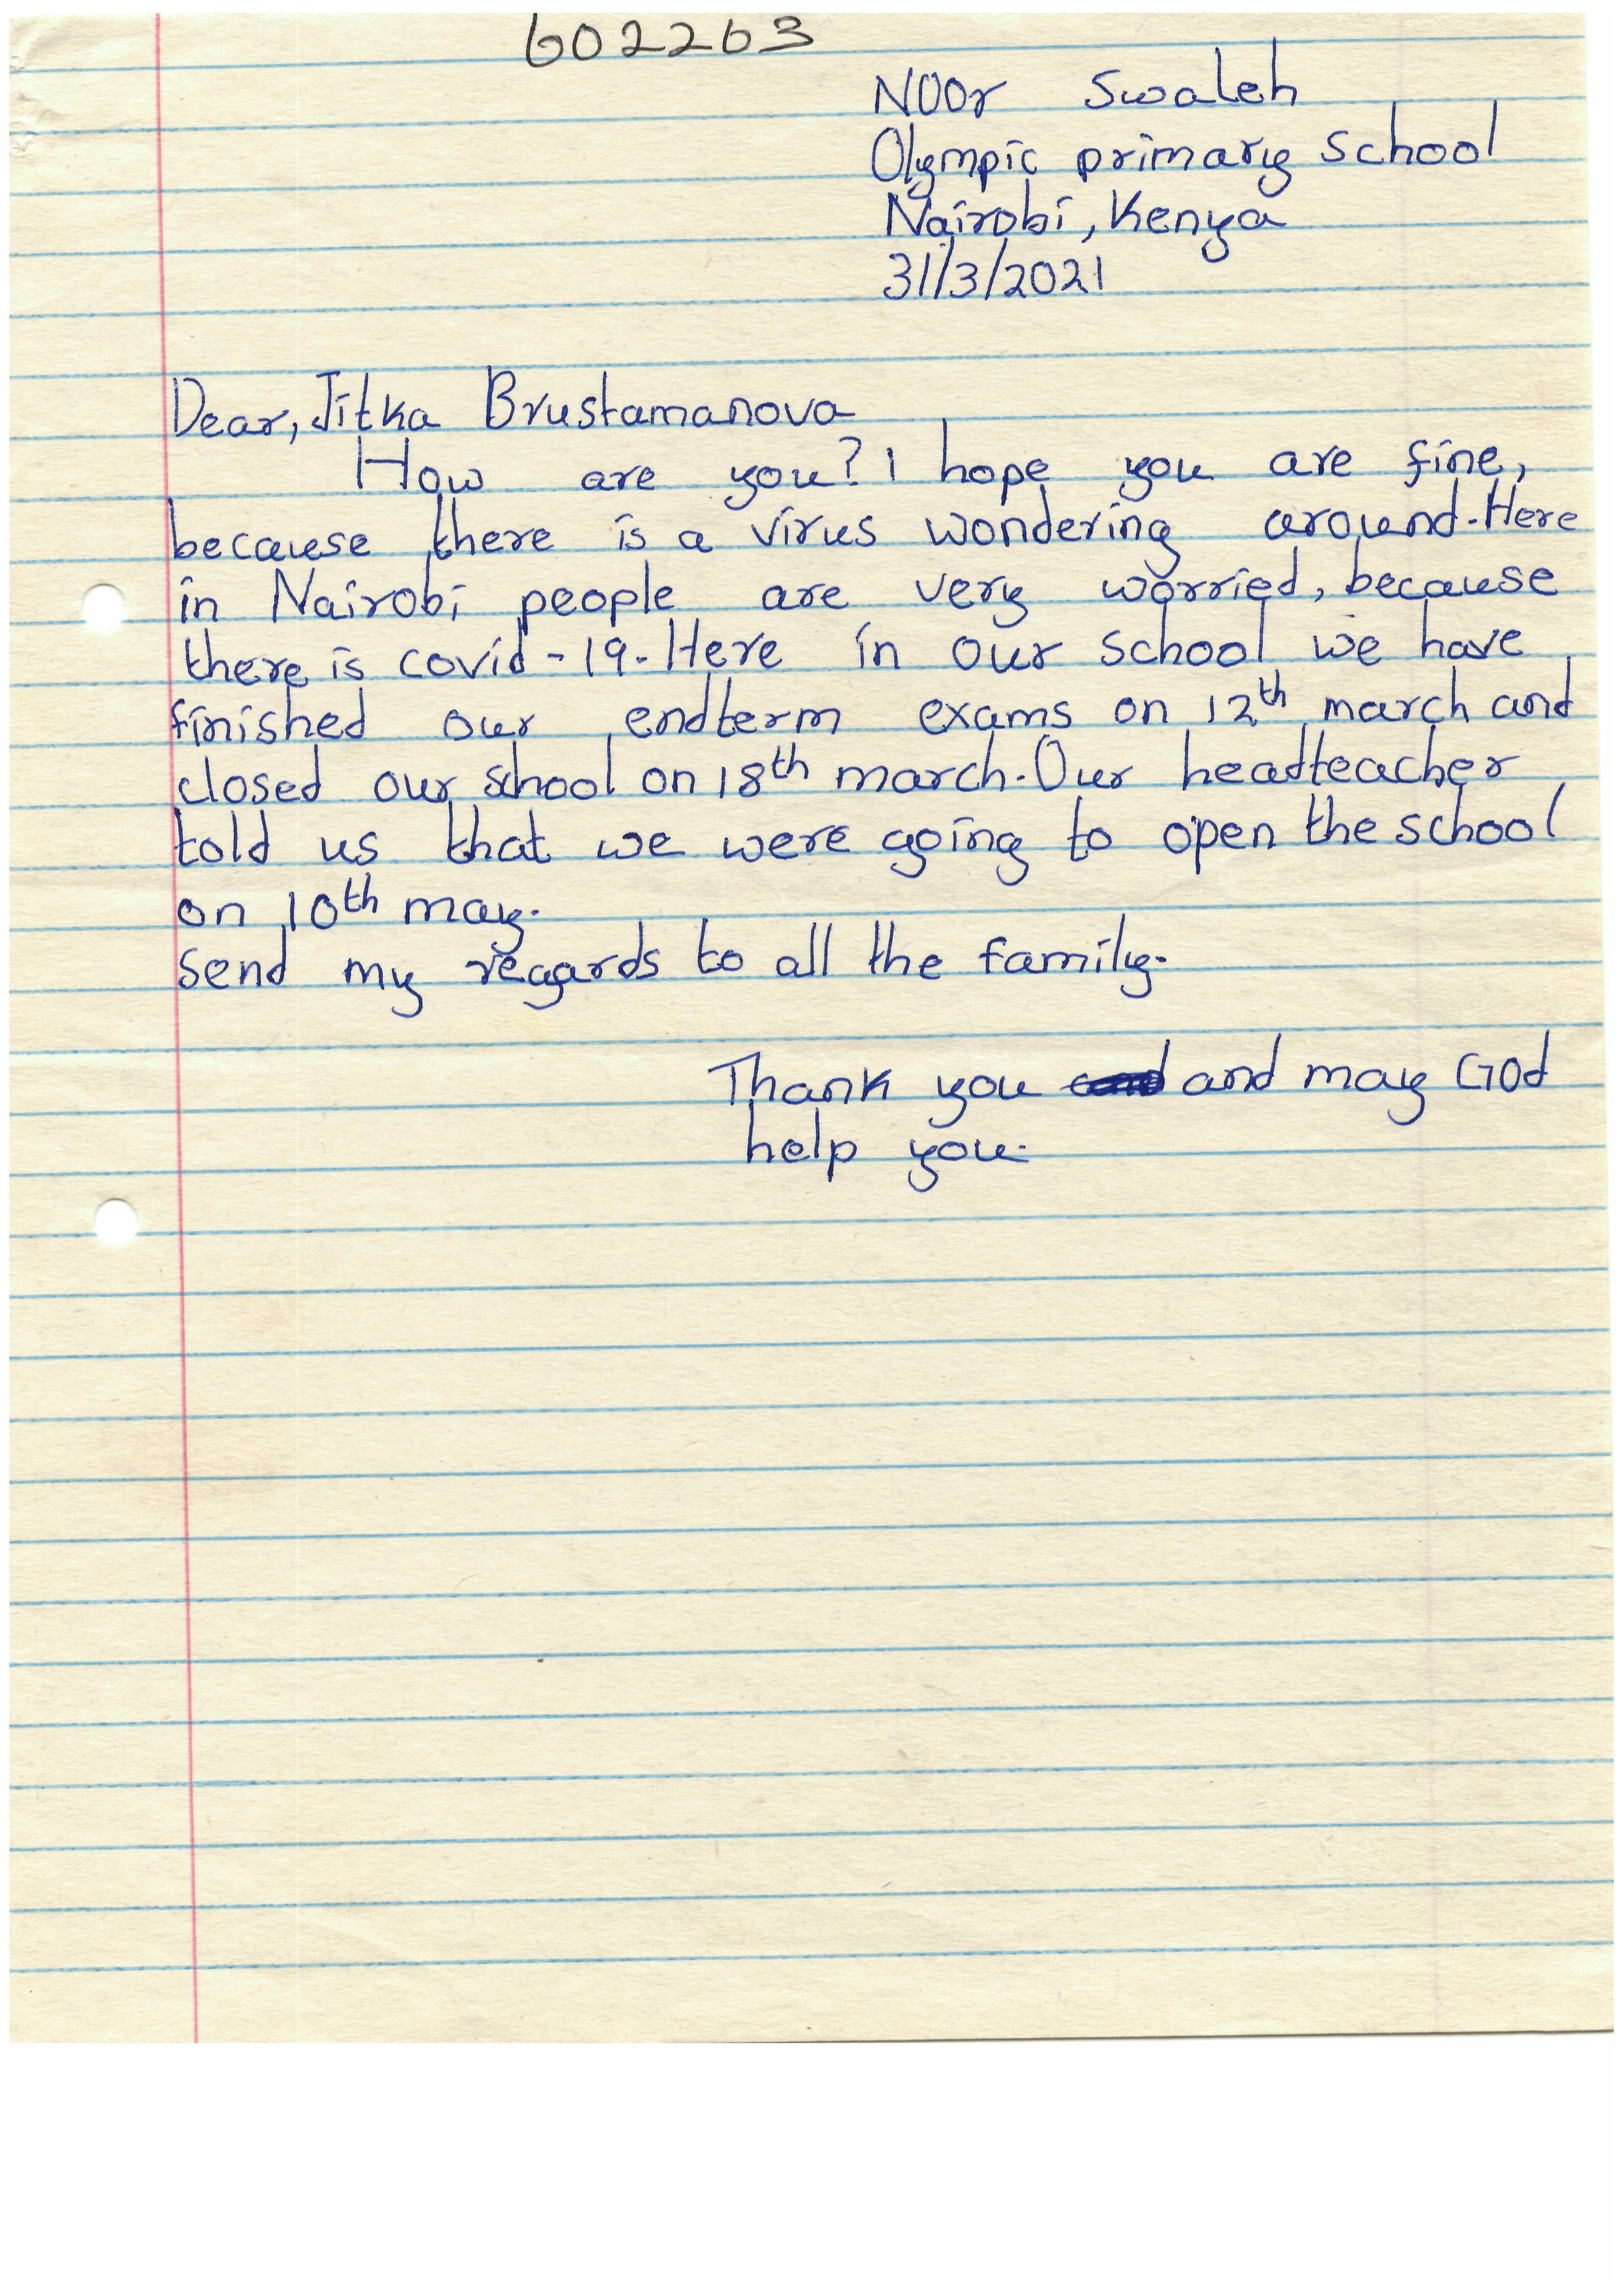 602263
Noor Swaleh
Olympic primary school
Nairobi, Kenya
31/3/2021
Dear, Jitka Brustamanova
How are you? I hope you are fine,
because there is a virus wondering around. Here
in Nairobi people are very worried, because
there is covid-19. Here in our school we have
finished our endterm exams on 12th march and
closed our school on 18th march. Our headteacher
told us that we were going to open the school
on 10th may.
Send my regards to all the family.
Thank you and may God
help you.